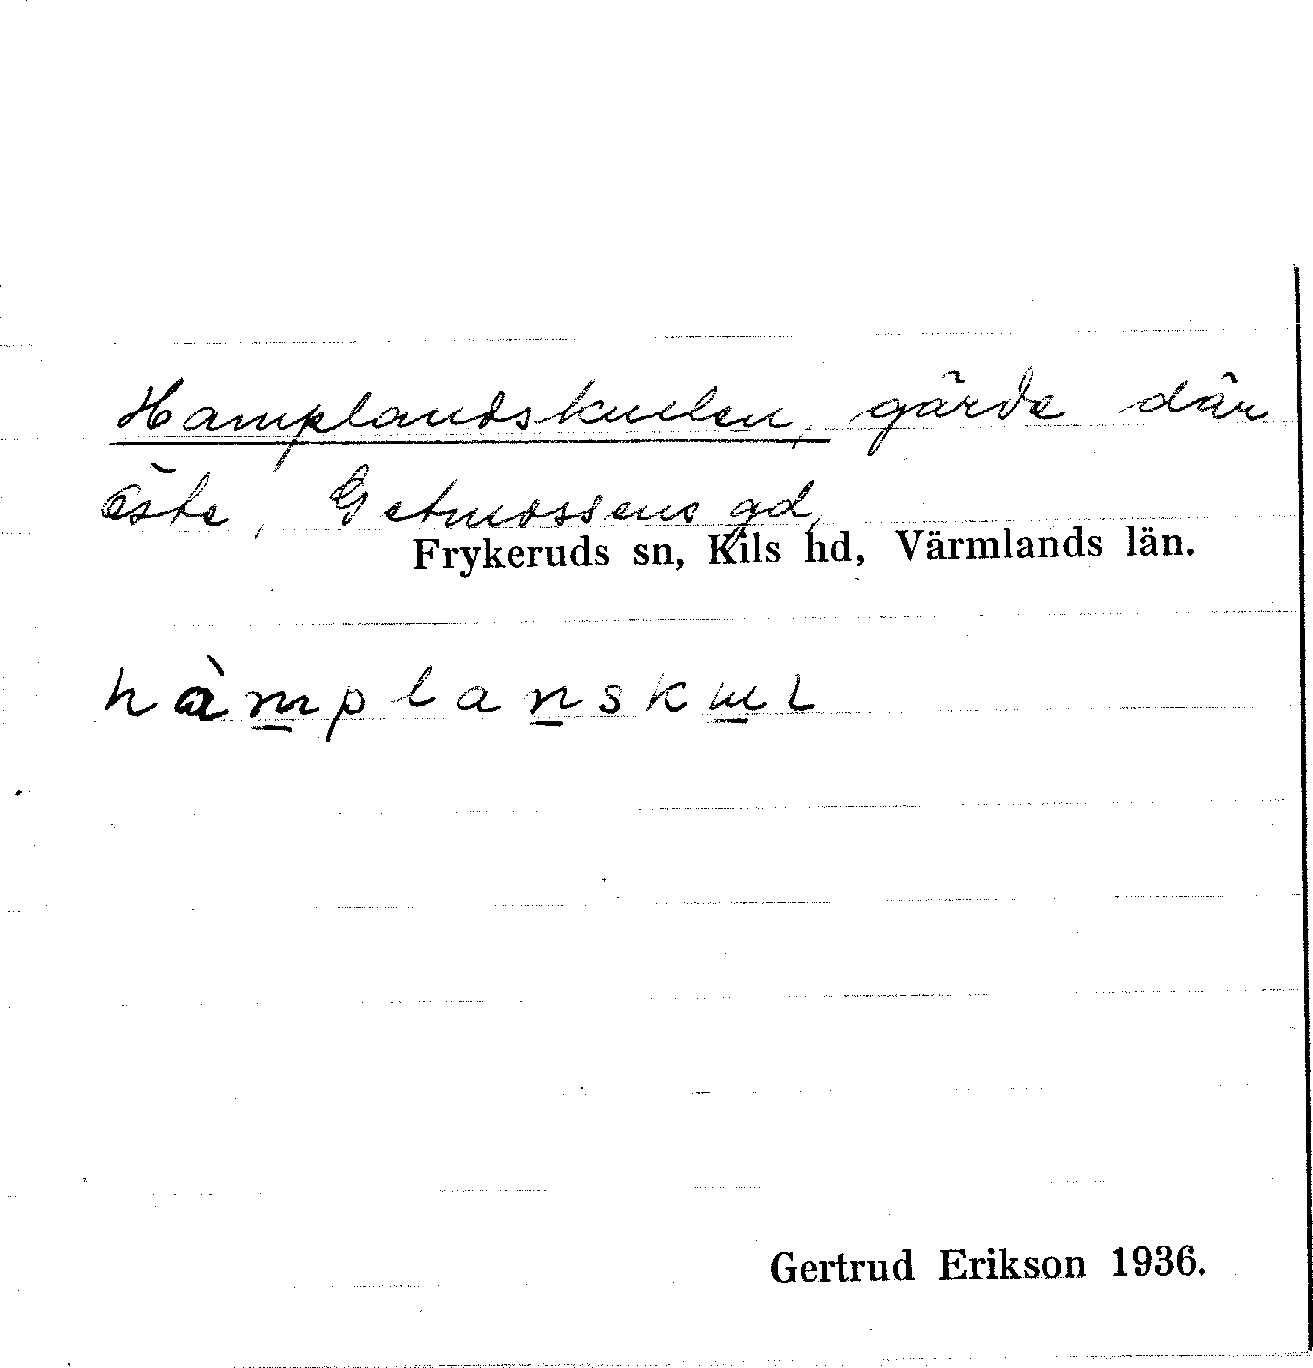 Hamplandskullen, gärde där
öste, Getmossens gd,
Frykeruds sn, Kils hd, Värmlands län.
Gertrud Erikson 1936.